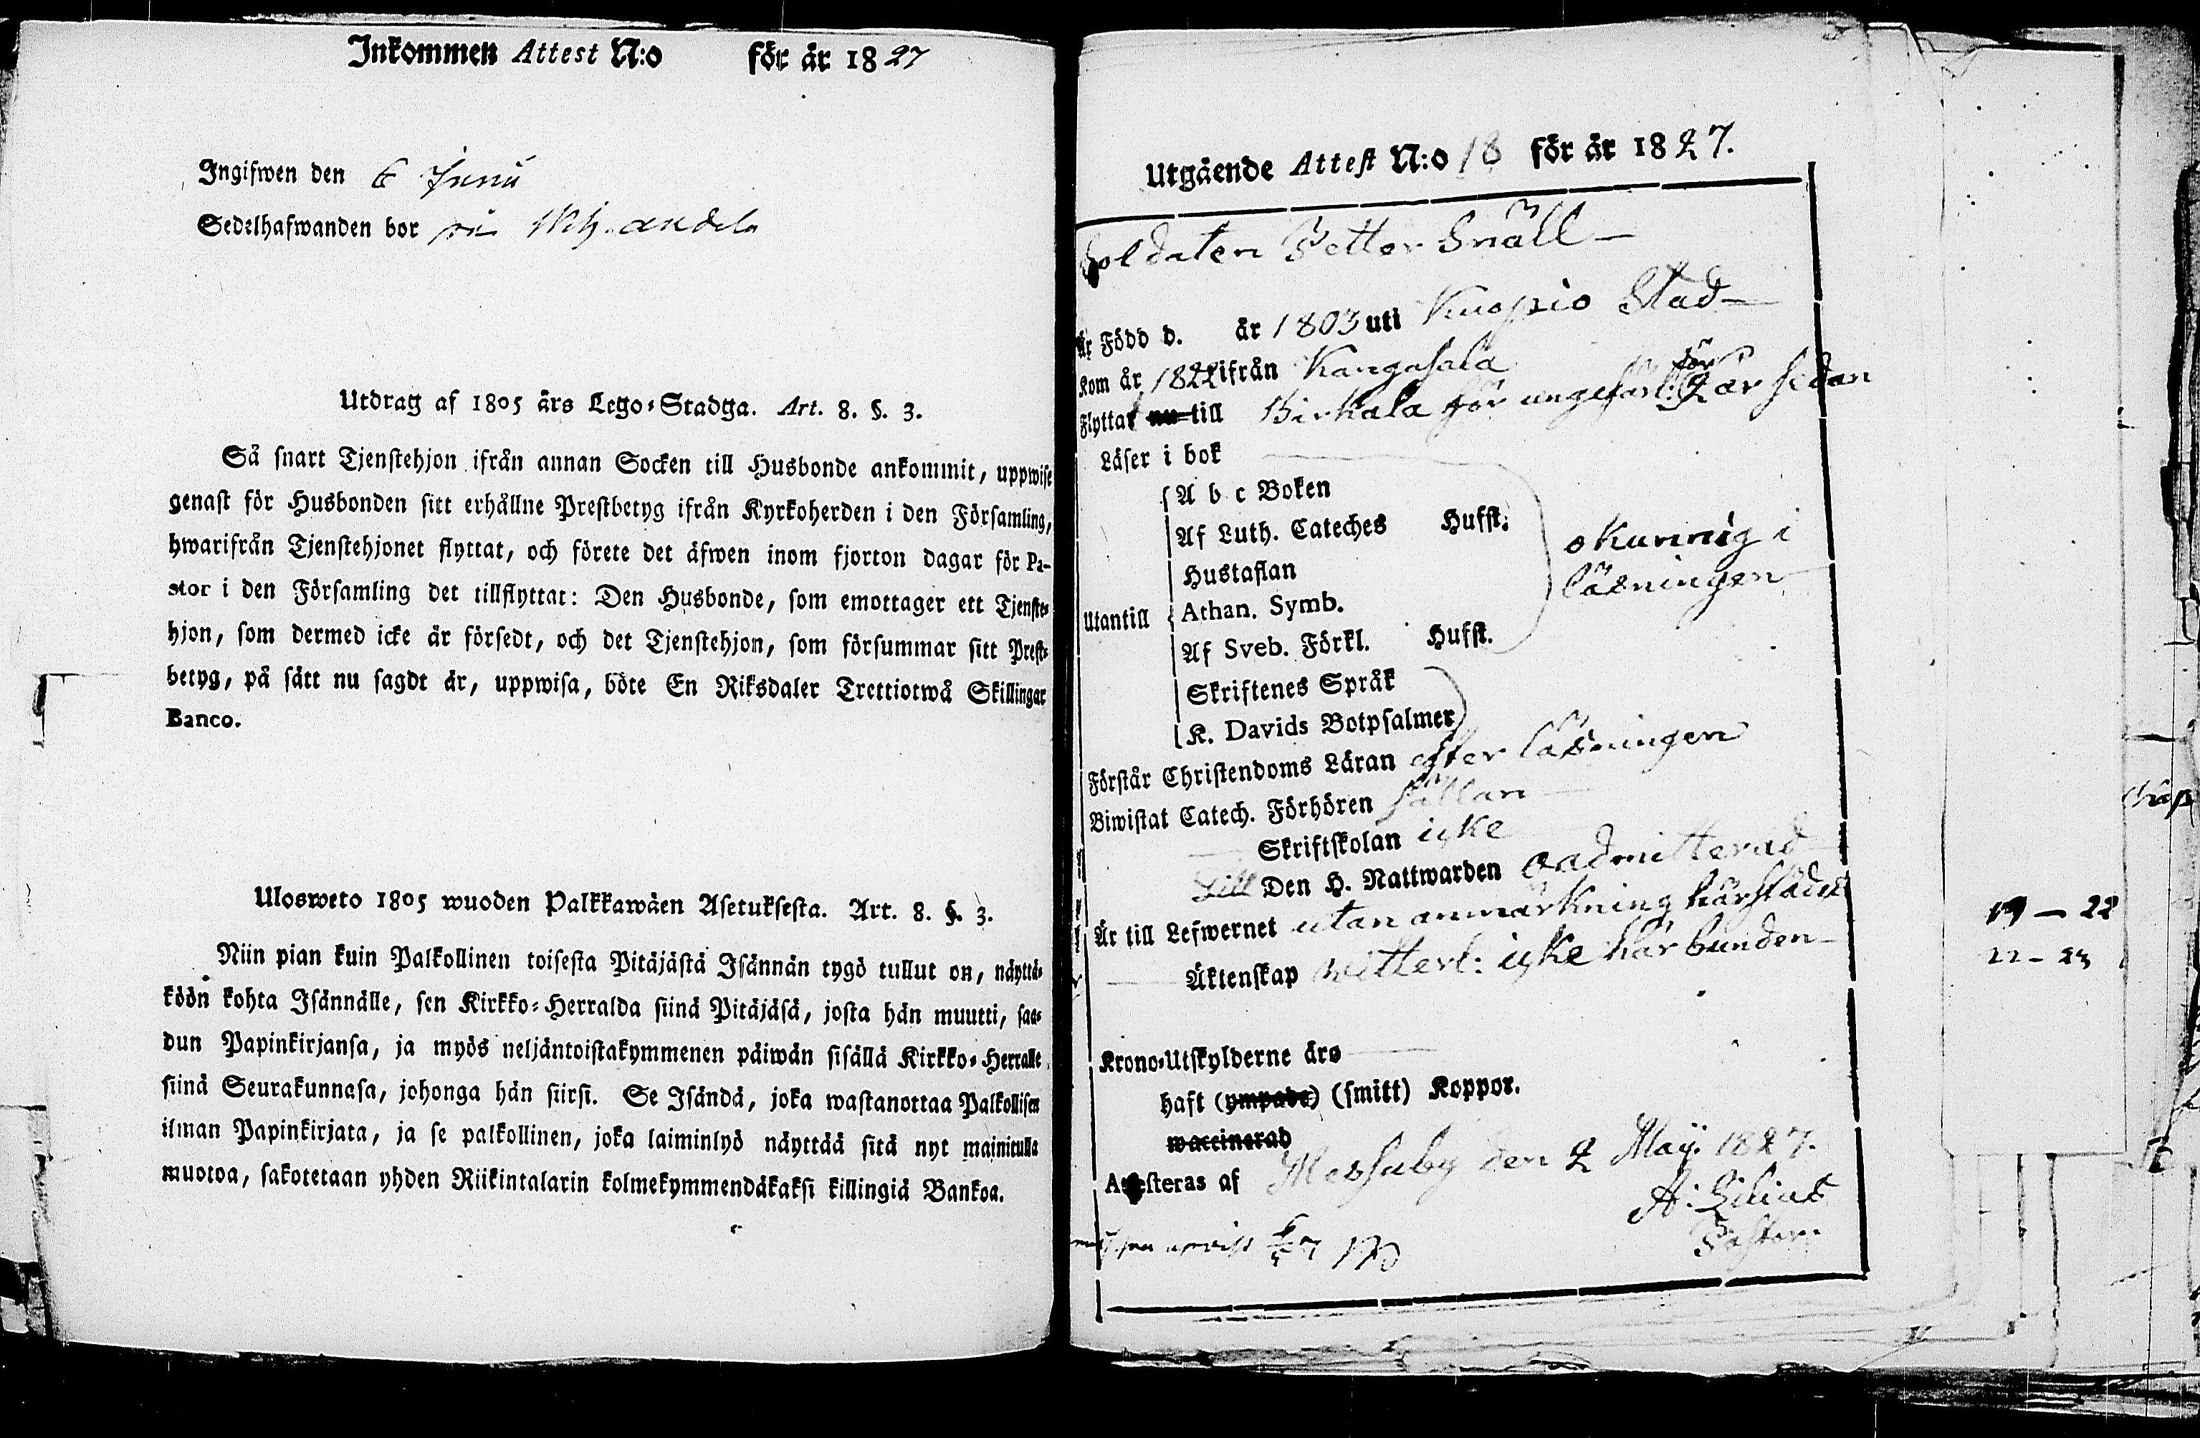 Inkommen Attest N:o för år 1827
Ingifwen den 6 Junii
Sedelhafwanden bor
Utdrag af 1805 års Lego-Stadga. Art. 8. §. 3.
Så snart Tjenstehjon ifrån annan Socken till Husbonde ankommit, uppwise
genast för Husbonden sitt erhållne Prestbetyg ifrån Kyrkoherden i den Församling,
hwarifrån Tjenstehjonet flyttat, och förete det äfwen inom fjorton dagar för Pa-
stor i den Församling det tillflyttat: Den Husbonde, som emottager ett Tjenste-
hjon, som dermed icke är försedt, och det Tjenstehjon, som försummar sitt Prest-
betyg, på sätt nu sagdt är, uppwisa, böte En Riksdaler Trettiotwå Skillingar
Banco.
Ulosweto 1805 wuoden Palkkawäen Asetuksesta. Art. 8. §. 3.
Niin pian kuin Palkollinen toisesta Pitäjästä Isännän tygö tullut on, näyttä-
köön kohta Isännälle, sen Kirkko-Herralda siinä Pitäjäsä, josta hän muutti, saa-
dun Papinkirjansa, ja myös neljäntoistakymmenen päiwän sisällä Kirkko-Herralle
siinä Seurakunnasa, johonga hän siirsi. Se Isändä, joka wastanottaa Palkollisen
ilman Papinkirjata, ja se palkollinen, joka laiminlyö näyttää sitä nyt mainitulla
muotoa, sakotetaan yhden Riikintalarin kolmekymmendäkaksi killingiä Bankoa.
Utgående Attest N:o 18 för år 1827.
Soldaten Petter Snäll
Är Född d. år 1803 uti Kuopio Stad
Kom år 1822 ifrån Kangasala
för
Flyttat nu till Birkala för ungefärl: 2 år sedan
Läser i bok
A b c Boken
Af Luth. Cateches Hufst.
Hustaflan
okunnig i
läsningen
Utantill Athan. Symb.
Af Sveb. Förkl. Hufst.
Skriftenes Språk
K. Davids Botpsalmer
Förstår Christendoms Läran efter läsningen
Biwistat Catech. Förhören sällan
Skriftskolan icke
till Den H. Nattwarden oadmitterad
Är till Lefwernet utan anmärkning härstädes
Äktenskap witterl: icke här bunden
Krono-Utskylderne års
haft (ympade) (smitt) Koppor.
waccinerad
Attesteras af Messuby den 2 Maji 1827.
A: Lilius
Pastor.
19 - 22
22 - 23